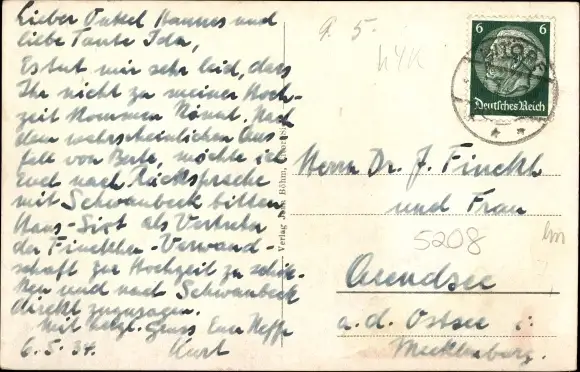 Lieber Onkel Hannes und
liebe Tante Ida,
Es tut mir sehr leid, dass
Ihr nicht zu meiner Hoch-
zeit kommen könnt. Nach
dem wahrscheinlichen Aus-
fall von Berte, möchte ich
Euch nach Rücksprache
mit Schwanbeck bitten
Hans-Sirt als Vertreter
der Finckhen-Verwand-
schaft zur Hochzeit zu schik-
ken und nach Schwanbeck
direkt zuzusagen.
Mit herzl. Gruss Euer Neffe
6.5.34. Kurt
9. 5.
6 6
Deutsches Reich
Verlag Böhm,
Herrn Dr. J. Finckh
und Frau
5208
Arendsee
a.d. Ostsee i.
Mecklenburg.